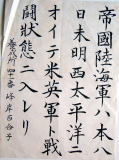 帝國陸海軍ハ本八
日未明西太平洋ニ
オイテ米英軍ト戦
闘状態ニ入レリ